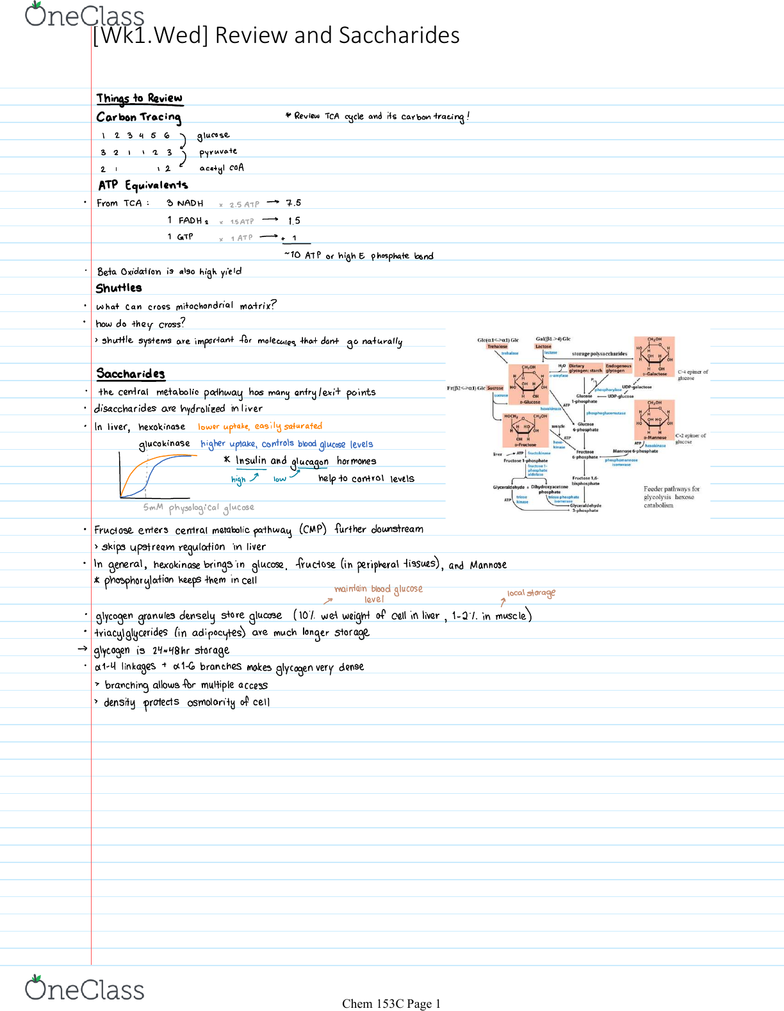 OneClass
[Wk1.Wed] Review and Saccharides
Things to Review
Carbon Tracing
* Review TCA cycle and its carbon tracing!
1 2 3 4 5 6 glucose
3 2 1 1 2 3 pyruvate
2 1 1 2 acetyl coA
ATP Equivalents
• From TCA : 3 NADH × 2.5 ATP → 7.5
1 FADH2 × 1.5 ATP → 1.5
1 GTP × 1 ATP → + 1
~10 ATP or high E phosphate bond
• Beta Oxidation is also high yield
Shuttles
• what can cross mitochondrial matrix?
• how do they cross?
> shuttle systems are important for molecules that dont go naturally
Saccharides
• the central metabolic pathway has many entry/exit points
• disaccharides are hydrolized in liver
• In liver, hexokinase lower uptake, easily saturated
glucokinase higher uptake, controls blood glucose levels
* Insulin and glucagon hormones
high low help to control levels
5mM physlogical glucose
Glc(α1<->α1) Glc
Gal(β1->4) Glc
Trehalose
Lactose
trehalase
lactase
storage polysaccharides
Dietary glycogen; starch
Endogenous glycogen
H2O
Pi
α-amylase
phosphorylase
Sucrose
sucrase
D-Glucose
D-Galactose
C-4 epimer of glucose
UDP-galactose
UDP-glucose
Glucose 1-phosphate
phosphoglucomutase
hexokinase
ATP
Glucose 6-phosphate
D-Fructose
D-Mannose
C-2 epimer of glucose
hexokinase
Mannose 6-phosphate
phosphomannose isomerase
liver
ATP
fructokinase
Fructose 1-phosphate
fructose 1-phosphate aldolase
Fructose 6-phosphate
Fructose 1,6-bisphosphate
Glyceraldehyde + Dihydroxyacetone phosphate
ATP
triose kinase
triose phosphate isomerase
Glyceraldehyde 3-phosphate
Feeder pathways for
glycolysis hexose
catabolism.
• Fructose enters central metabolic pathway (CMP) further downstream
> skips upstream regulation in liver
• In general, hexokinase brings in glucose, fructose (in peripheral tissues), and Mannose
* phosphorylation keeps them in cell
maintain blood glucose level
local storage
• glycogen granules densely store glucose (10% wet weight of cell in liver, 1-2% in muscle)
• triacylglycerides (in adipocytes) are much longer storage
→ glycogen is 24-48hr storage
• α1-4 linkages + α1-6 branches makes glycogen very dense
> branching allows for multiple access
> density protects osmolority of cell
OneClass
Chem 153C Page 1